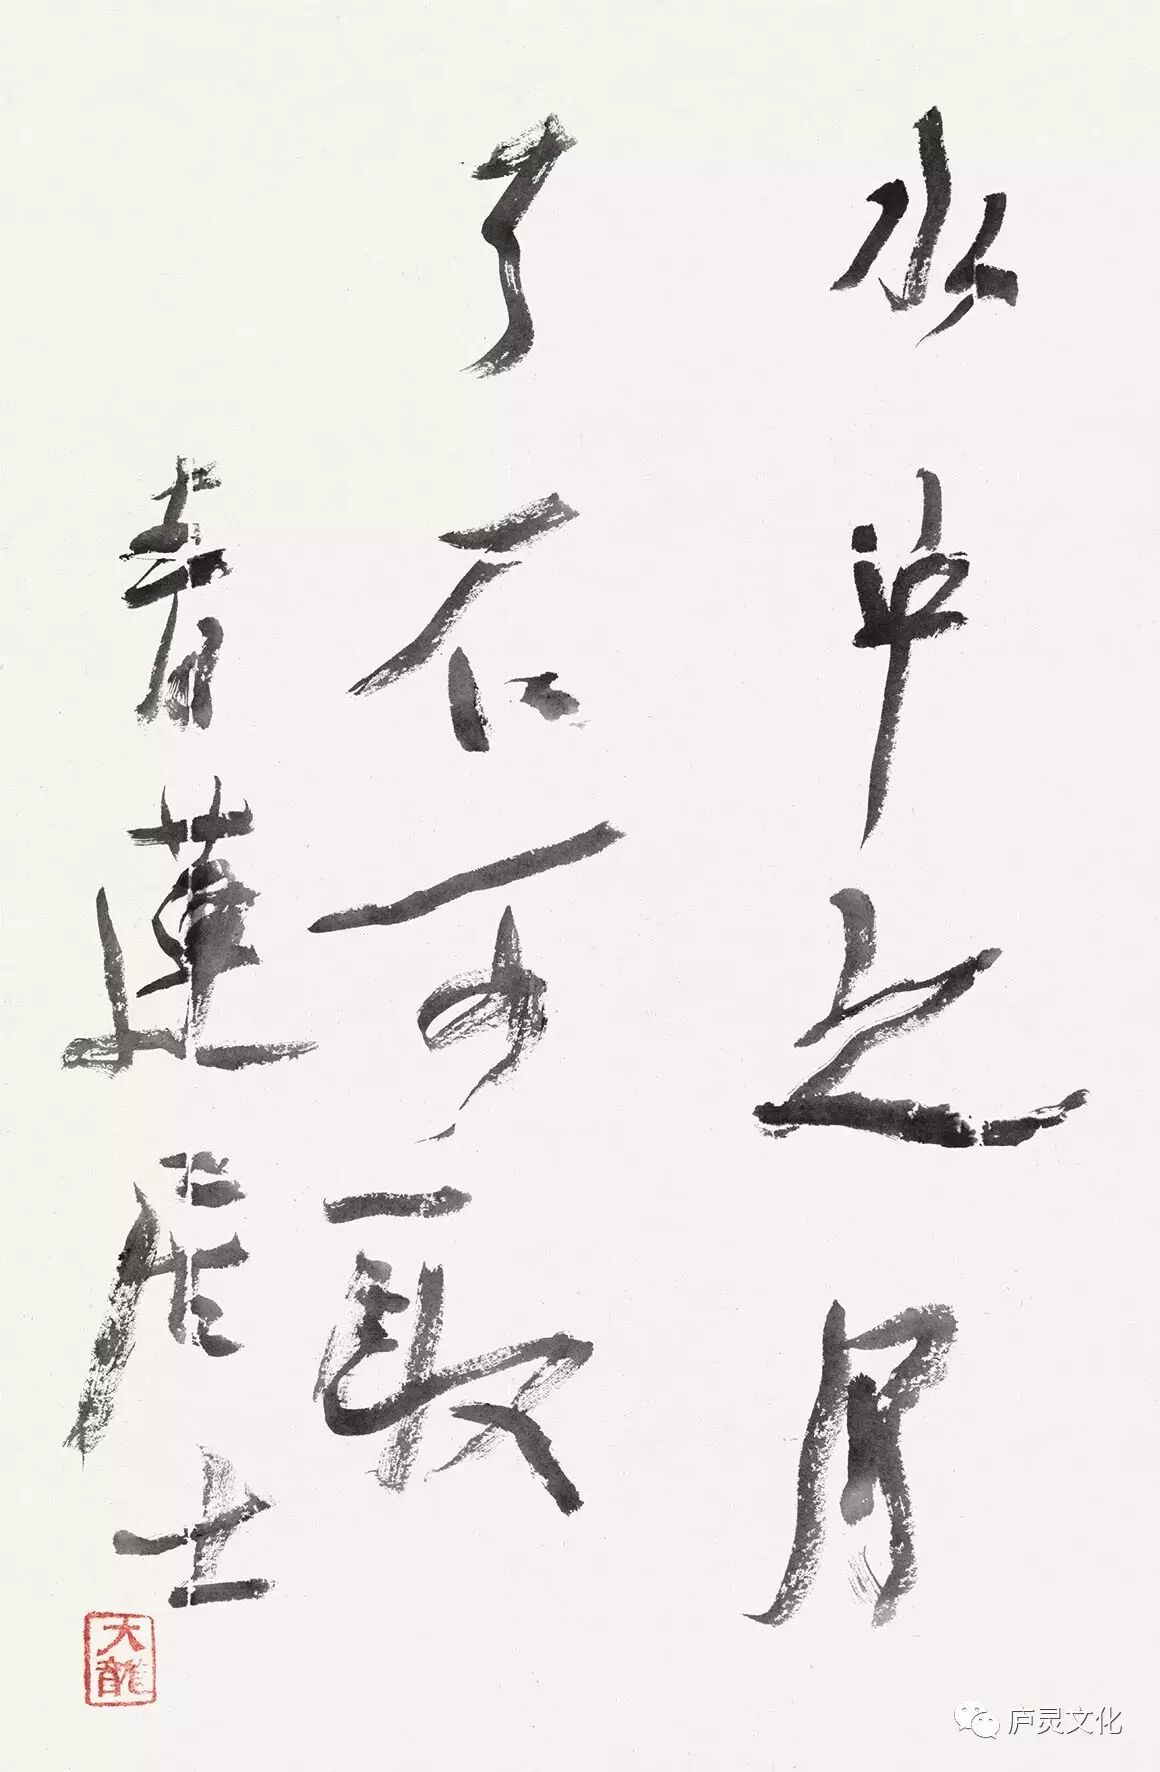 水中之月
了不可取
青莲居士
大龍
庐灵文化